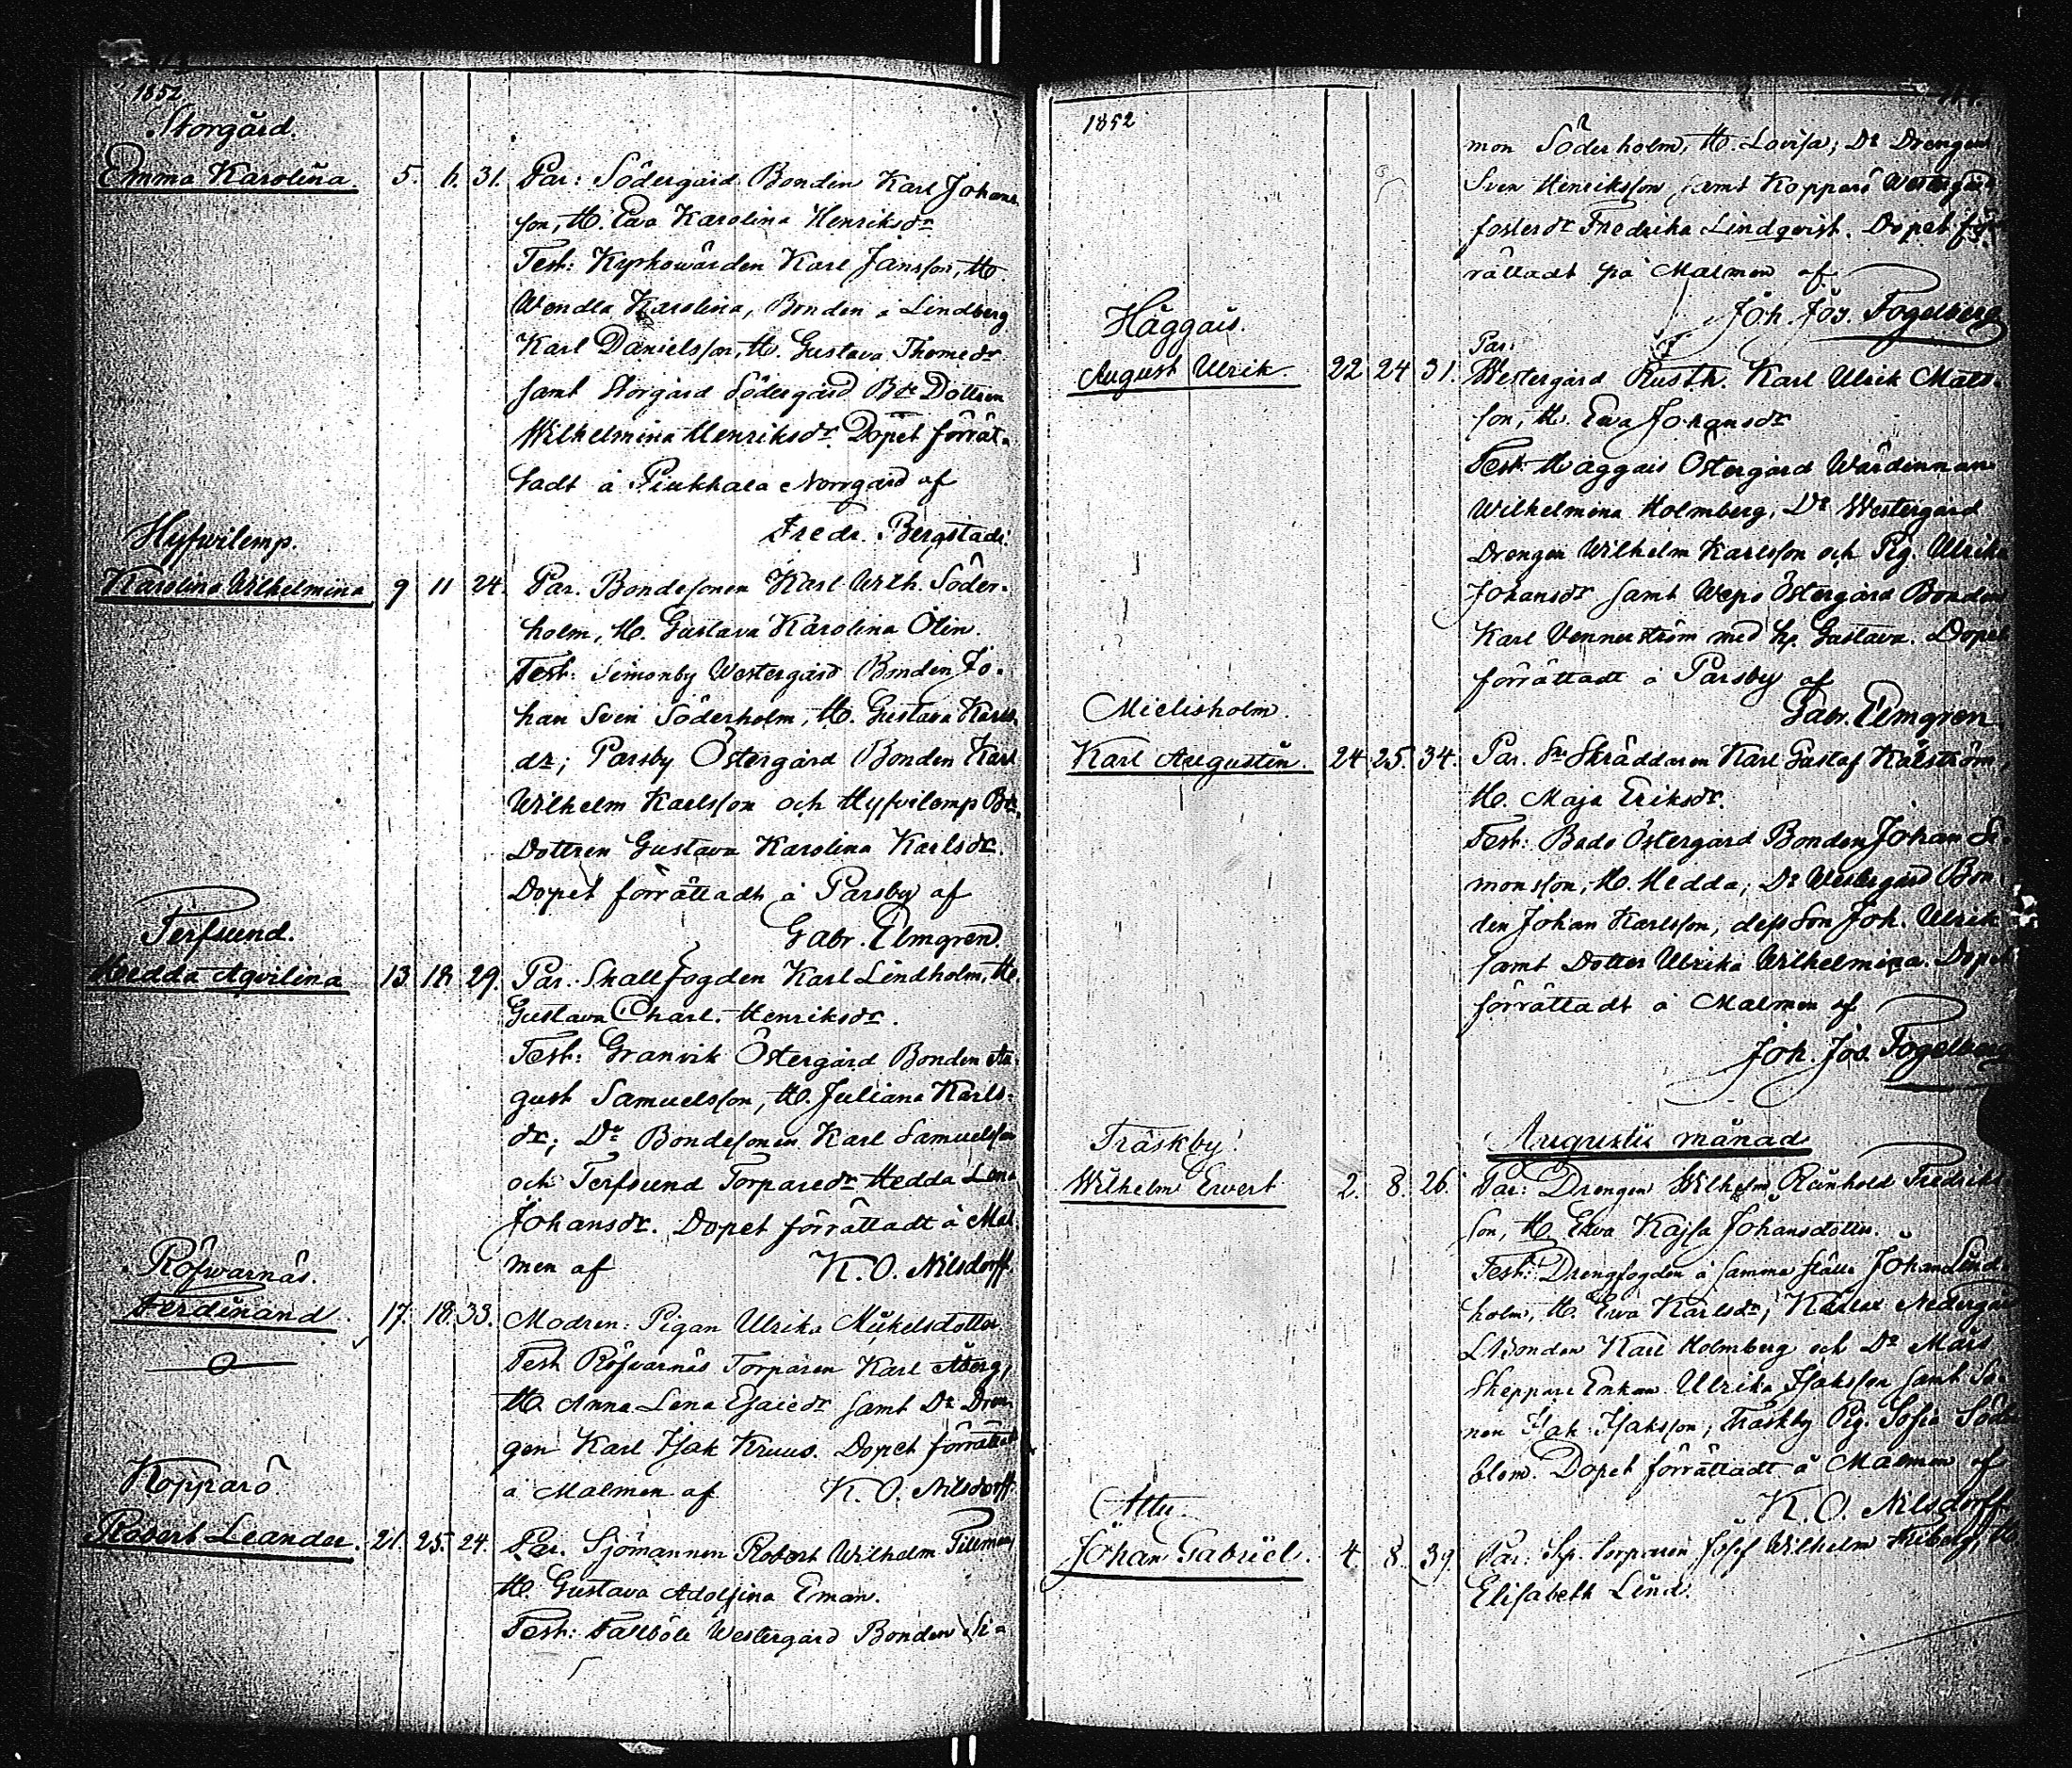 1852
Storgård.
Emma Karolina 5. 6. 31. Par: Södergård Bonden Karl Johans
son, H. Eva Karolina Henriksdr
Test: Kyrkowärden Karl Jansson, H.
Wendla Karolina, Bonden å Lindberg
Karl Danielsson, H. Gustava Thomedr
samt Storgård Södergård Bde Dottren
Wilhelmina Henriksdr. Dopet förrät-
tadt å Piukkala Norrgård af
Fredr. Bergstadi.
Hyfvilemp.
Karolina Wilhelmina 9 11 24. Par. Bondesonen Karl Wilh. Söder-
holm, H. Gustava Karolina Olin.
Test: Simonby Westergård Bonden Jo-
han Sven Söderholm, H. Gustava Karls-
dr; Parsby Östergård Bonden Karl
Wilhelm Karlsson och Hyfvilemp Bde
Dottren Gustava Karolina Karlsdr.
Dopet förrättadt å Parsby af
Gabr. Elmgren.
Terfsund.
Hedda Aqvilina 13 18 29. Par. Skallfogden Karl Lindholm, H.
Gustava Charl. Henriksdr.
Test: Granvik Östergård Bonden Au-
gust Samuelsson, H. Juliana Karls-
dr; Do Bondesonen Karl Samuelsson
och Terfsund Torparedr Hedda Lena
Johansdr. Dopet förrättadt å Mal
men af K. O. Nilsdorff.
Röfvarnäs.
Ferdinand 17. 18. 33. Modren: Pigan Ulrika Mickelsdotter
Test Röfvarnäs Torparen Karl Åberg,
H. Anna Lena Esaiedr samt Do Dren
gen Karl Isak Kruus. Dopet förrättadt
å Malmen af K. O. Nilsdorff.
Kopparö
Robert Leander. 21. 25. 24. Par. Sjömannen Robert Wilhelm Tileman
H. Gustava Adolfina Eman.
Test: Tallböle Westergård Bonden Si-
1852
mon Söderholm, H. Lovisa; Do Drengen
Sven Henriksson samt Kopparö Westergård
fosterdr Fredrika Lindqvist. Dopet för
rättadt på Malmen af
Joh. Jos. Fogelberg
Häggais.
Par:
August Ulrik 22 24 31. Westergård Rusth. Karl Ulrik Mats-
son, H. Eva Johansdr
Test: Häggais Östergård Wärdinnan
Wilhelmina Holmberg, Do Westergård
Drengen Wilhelm Karlsson och Pig. Ulrika
Johansdr samt Wepo Östergård Bonden
Karl Vennerström med h. Gustava. Dopet
förrättadt å Parsby af
Gabr. Elmgren
Mielisholm.
Karl Augustin. 24 25. 34. Par. Sn Skräddaren Karl Gustaf Kälström,
H. Maja Eriksdr.
Test: Bado Östergård Bonden Johan Si-
monsson, H. Hedda; Do Westergård Bon-
den Johan Karlsson, dess Son Joh. Ulrik
samt Dotter Ulrika Wilhelmina. Dopet
förrättadt å Malmen af
Joh. Jos. Fogelberg
Augusti månad
Träskby.
Wilhelm Ewert 2. 8. 26. Par: Drengen Wilhelm Reinhold Fredriks
son, H. Eva Kajsa Johansdotter.
Test: Drengfogden å samma ställe Johan Lind-
holm, H. Eva Karlsdr; Nedergård
Bonden Karl Holmberg och Do Mårs
Skeppare Enkan Ulrika Isaksson samt So-
nen Isak Isaksson; Träskby Pig. Sofia Söder
blom. Dopet förrättadt å Malmen af
K. O. Nilsdorff
Attu.
Johan Gabriel. 4. 8. 39. Par: Sk. Torparen Josef Wilhelm Friberg, H.
Elisabeth Lind.